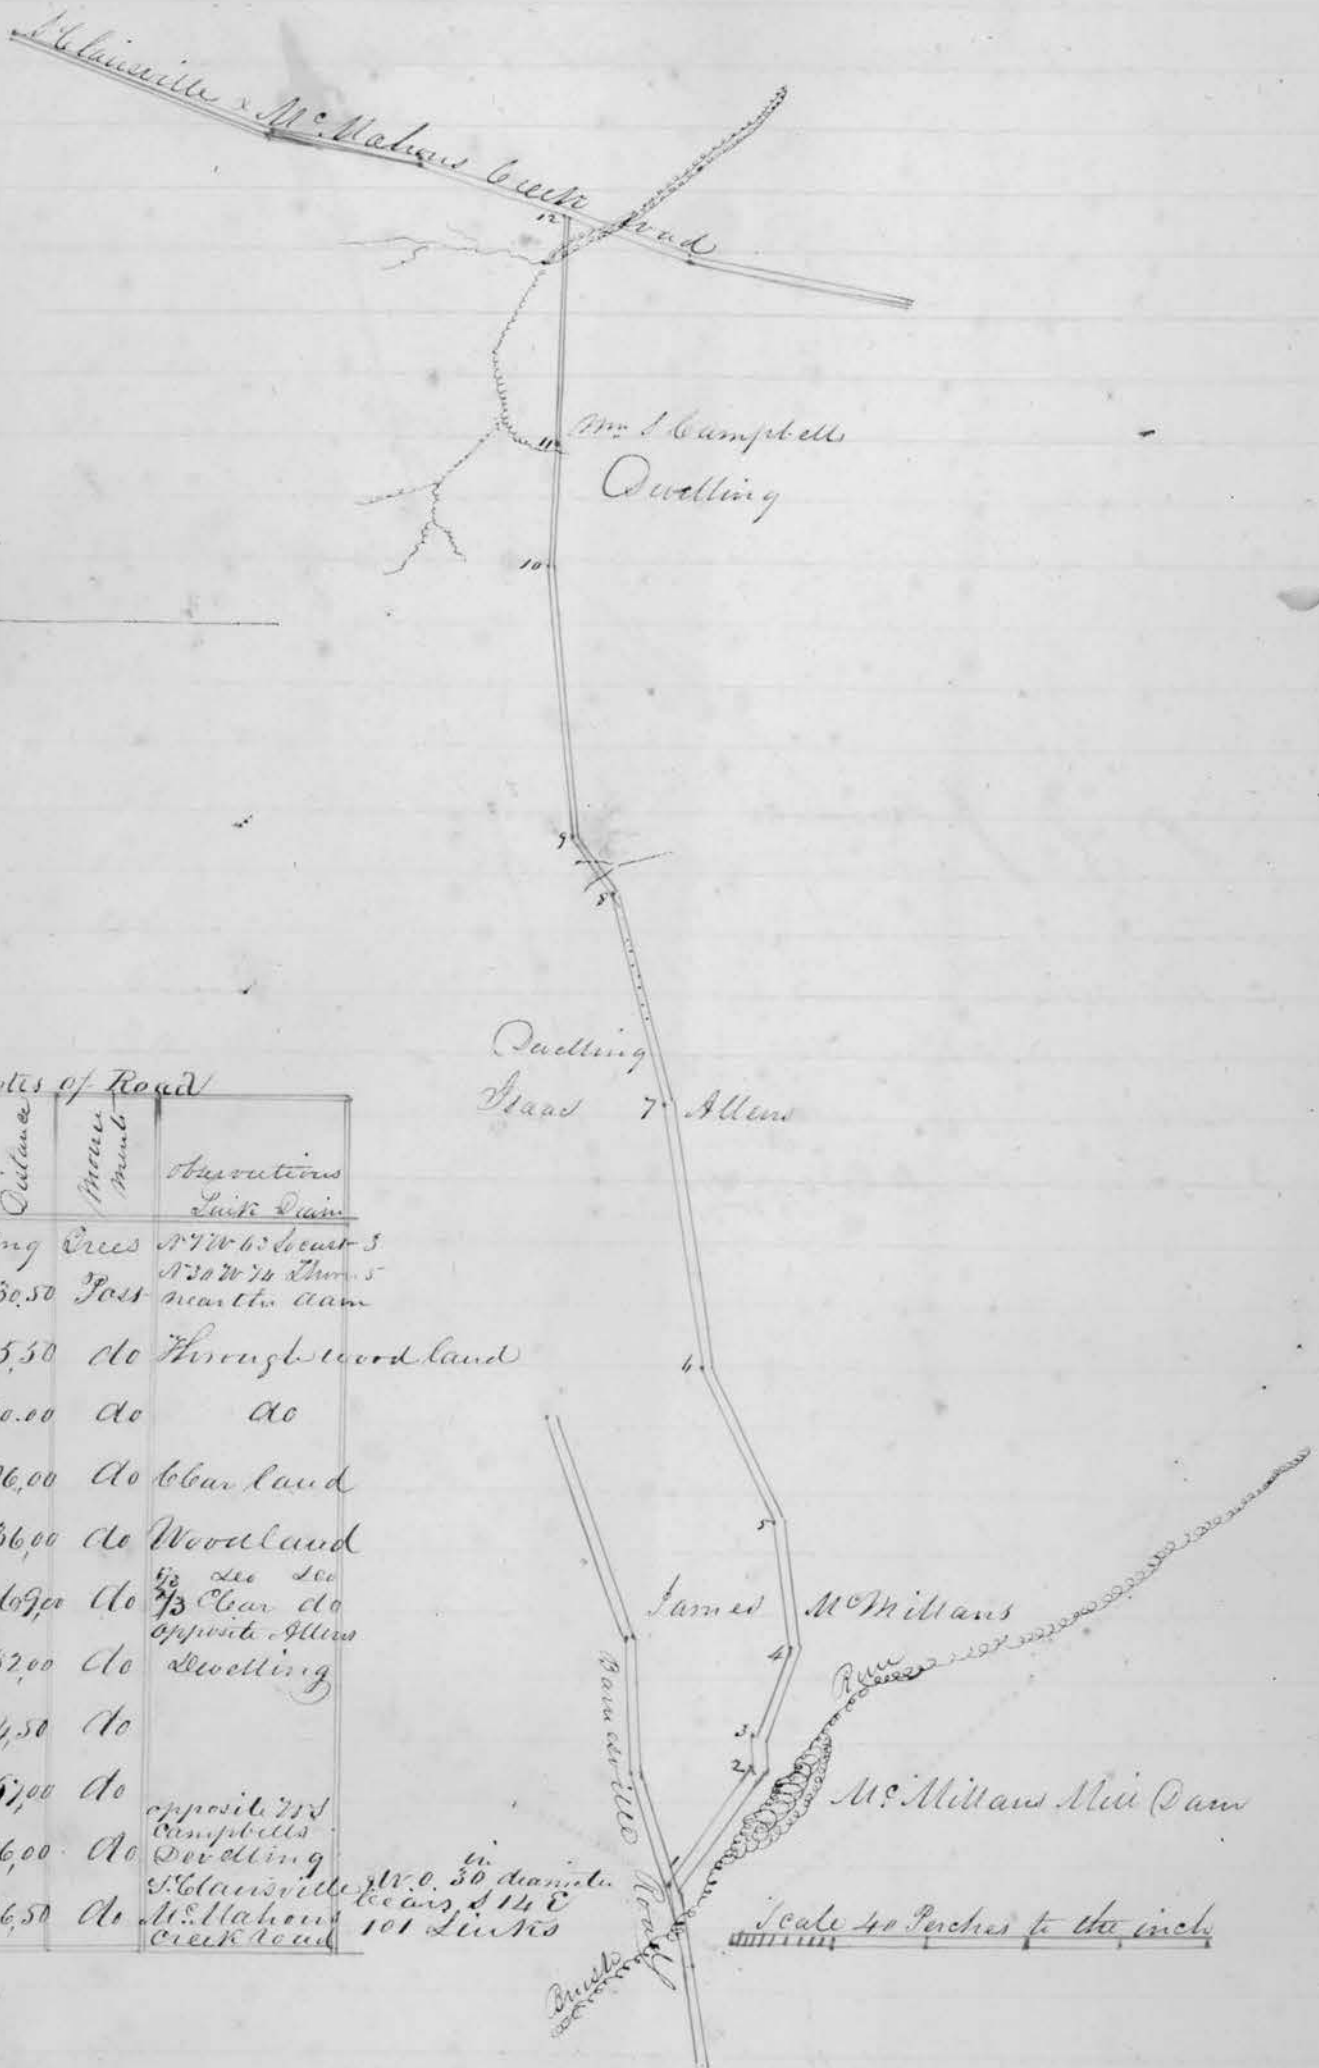 St Clairsville & Mc Mahons Creek road
12
11
Wm S Campbells
Dwelling
10
9
8
Dwelling
Isaac 7 Allens
6
5
James McMillans
4
3
2
1
Run
Mc Millans Mill Dam
Barnesville Road
Brush
Scale 40 Perches to the inch
of Road
Distance Monu ments observations
Link Diam
Trees N 7 W 63 Locust 3
N 30 W 74 Thorn 5
30.50 Post near the dam
5,50 do Through wood land
0.00 do do
6,00 do Clear land
36,00 do Woodland
1/3 do do
69,00 do 2/3 Clear do
opposite Allens
52,00 do Dwelling
4,50 do
57,00 do
opposite W S
Campbells
6,00 do Dwelling
St Clairsville W.O. 30 in diameter
6,50 do Mc Mahons bears S 14 E
Creek road 101 Links